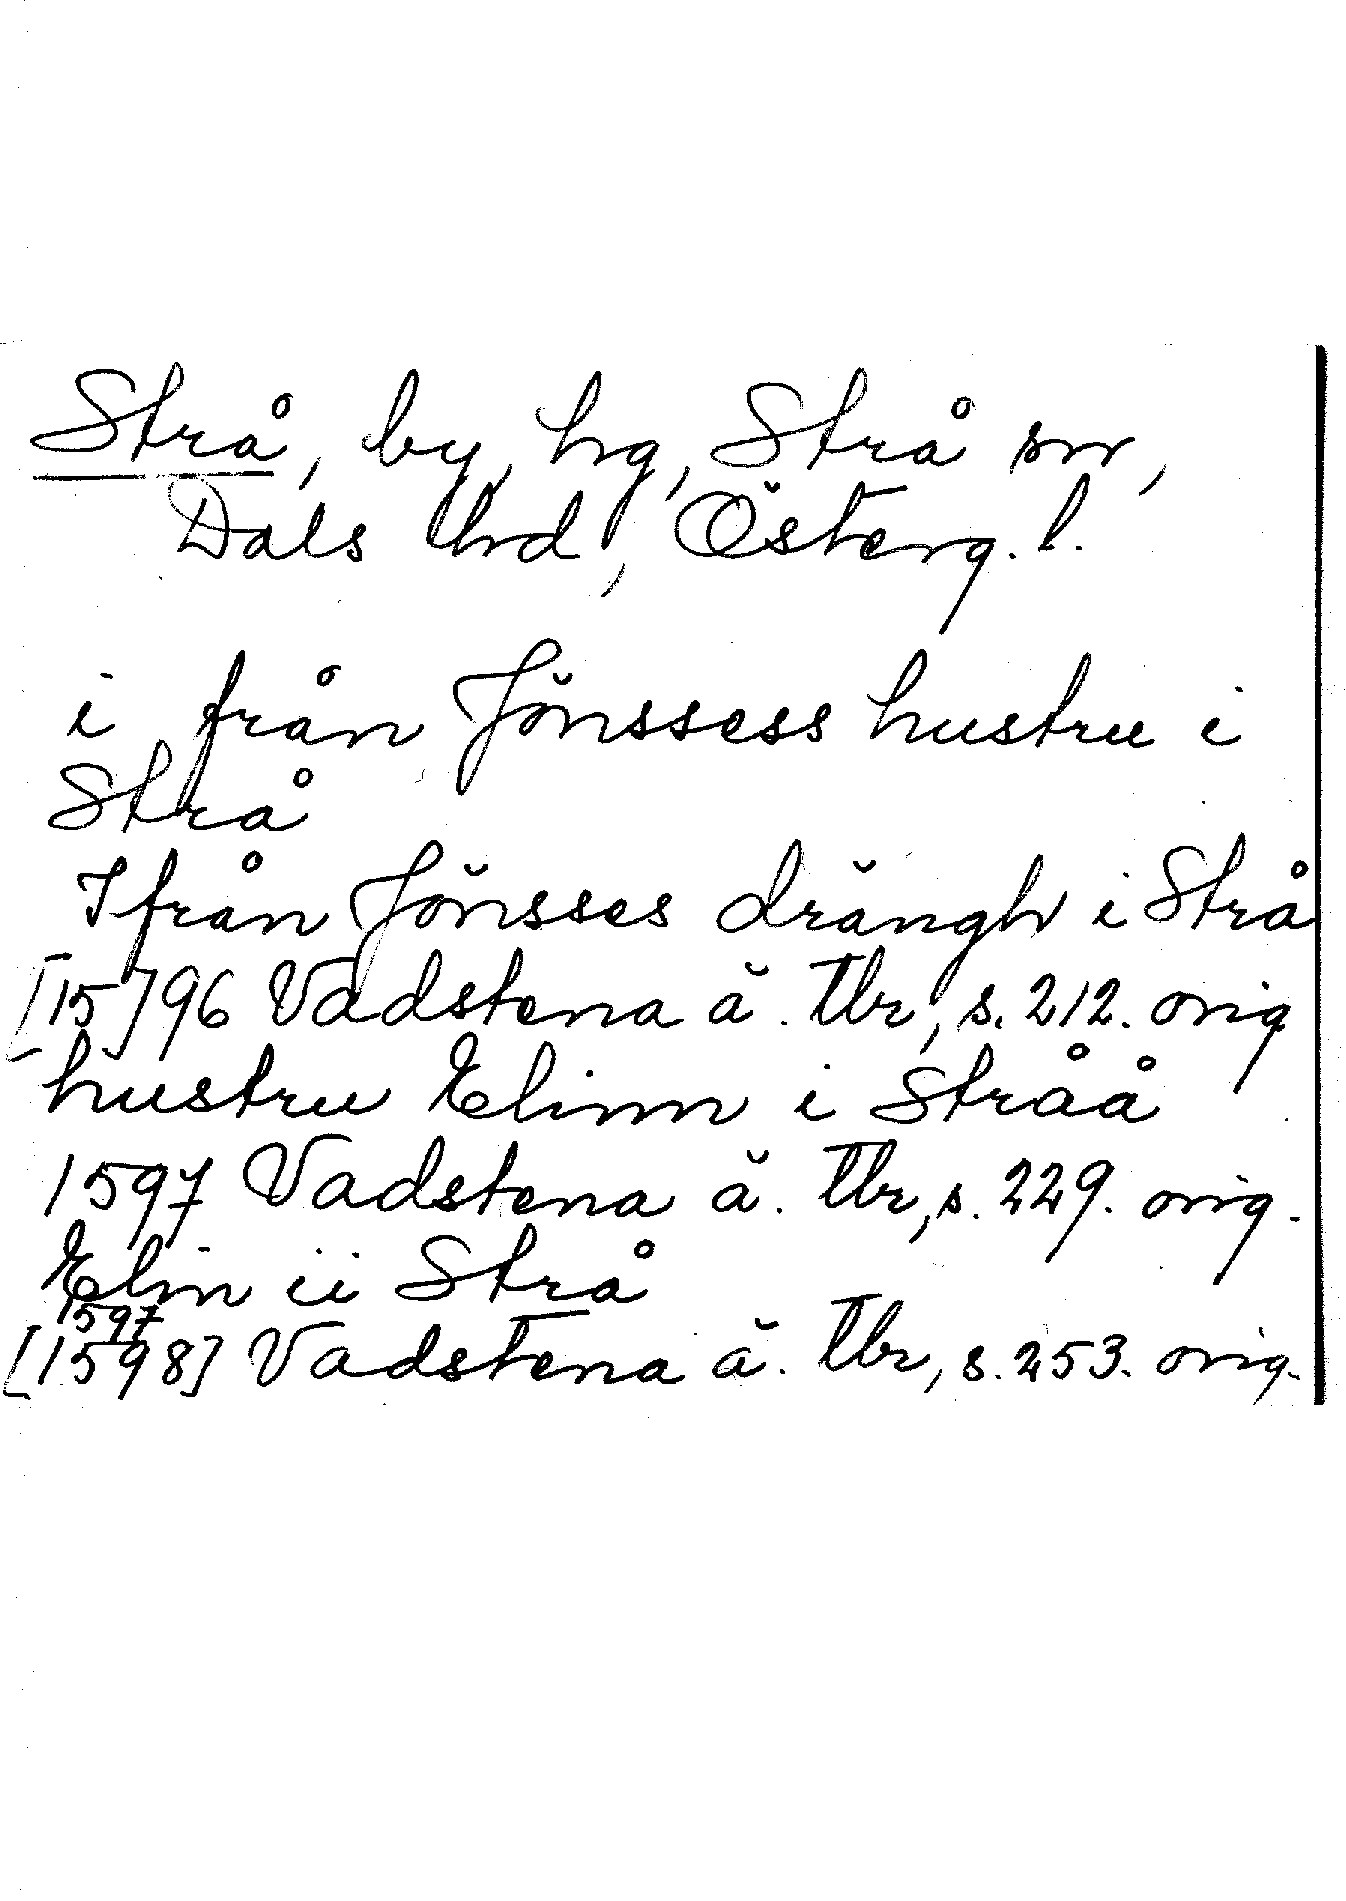 Strå, by, hg, Strå sn,
Dals hrd, Österg. l.
i från Jönssess hustru i
Strå
Ifrån Jönsses drängh i Strå
[15]96 Vadstena ä. Tbr, s. 212. orig
hustru Elinn i Stråå
1597 Vadstena ä. Tbr, s. 229. orig.
Elin ii Strå
1597
[1598] Vadstena ä. Tbr, s. 253. orig.